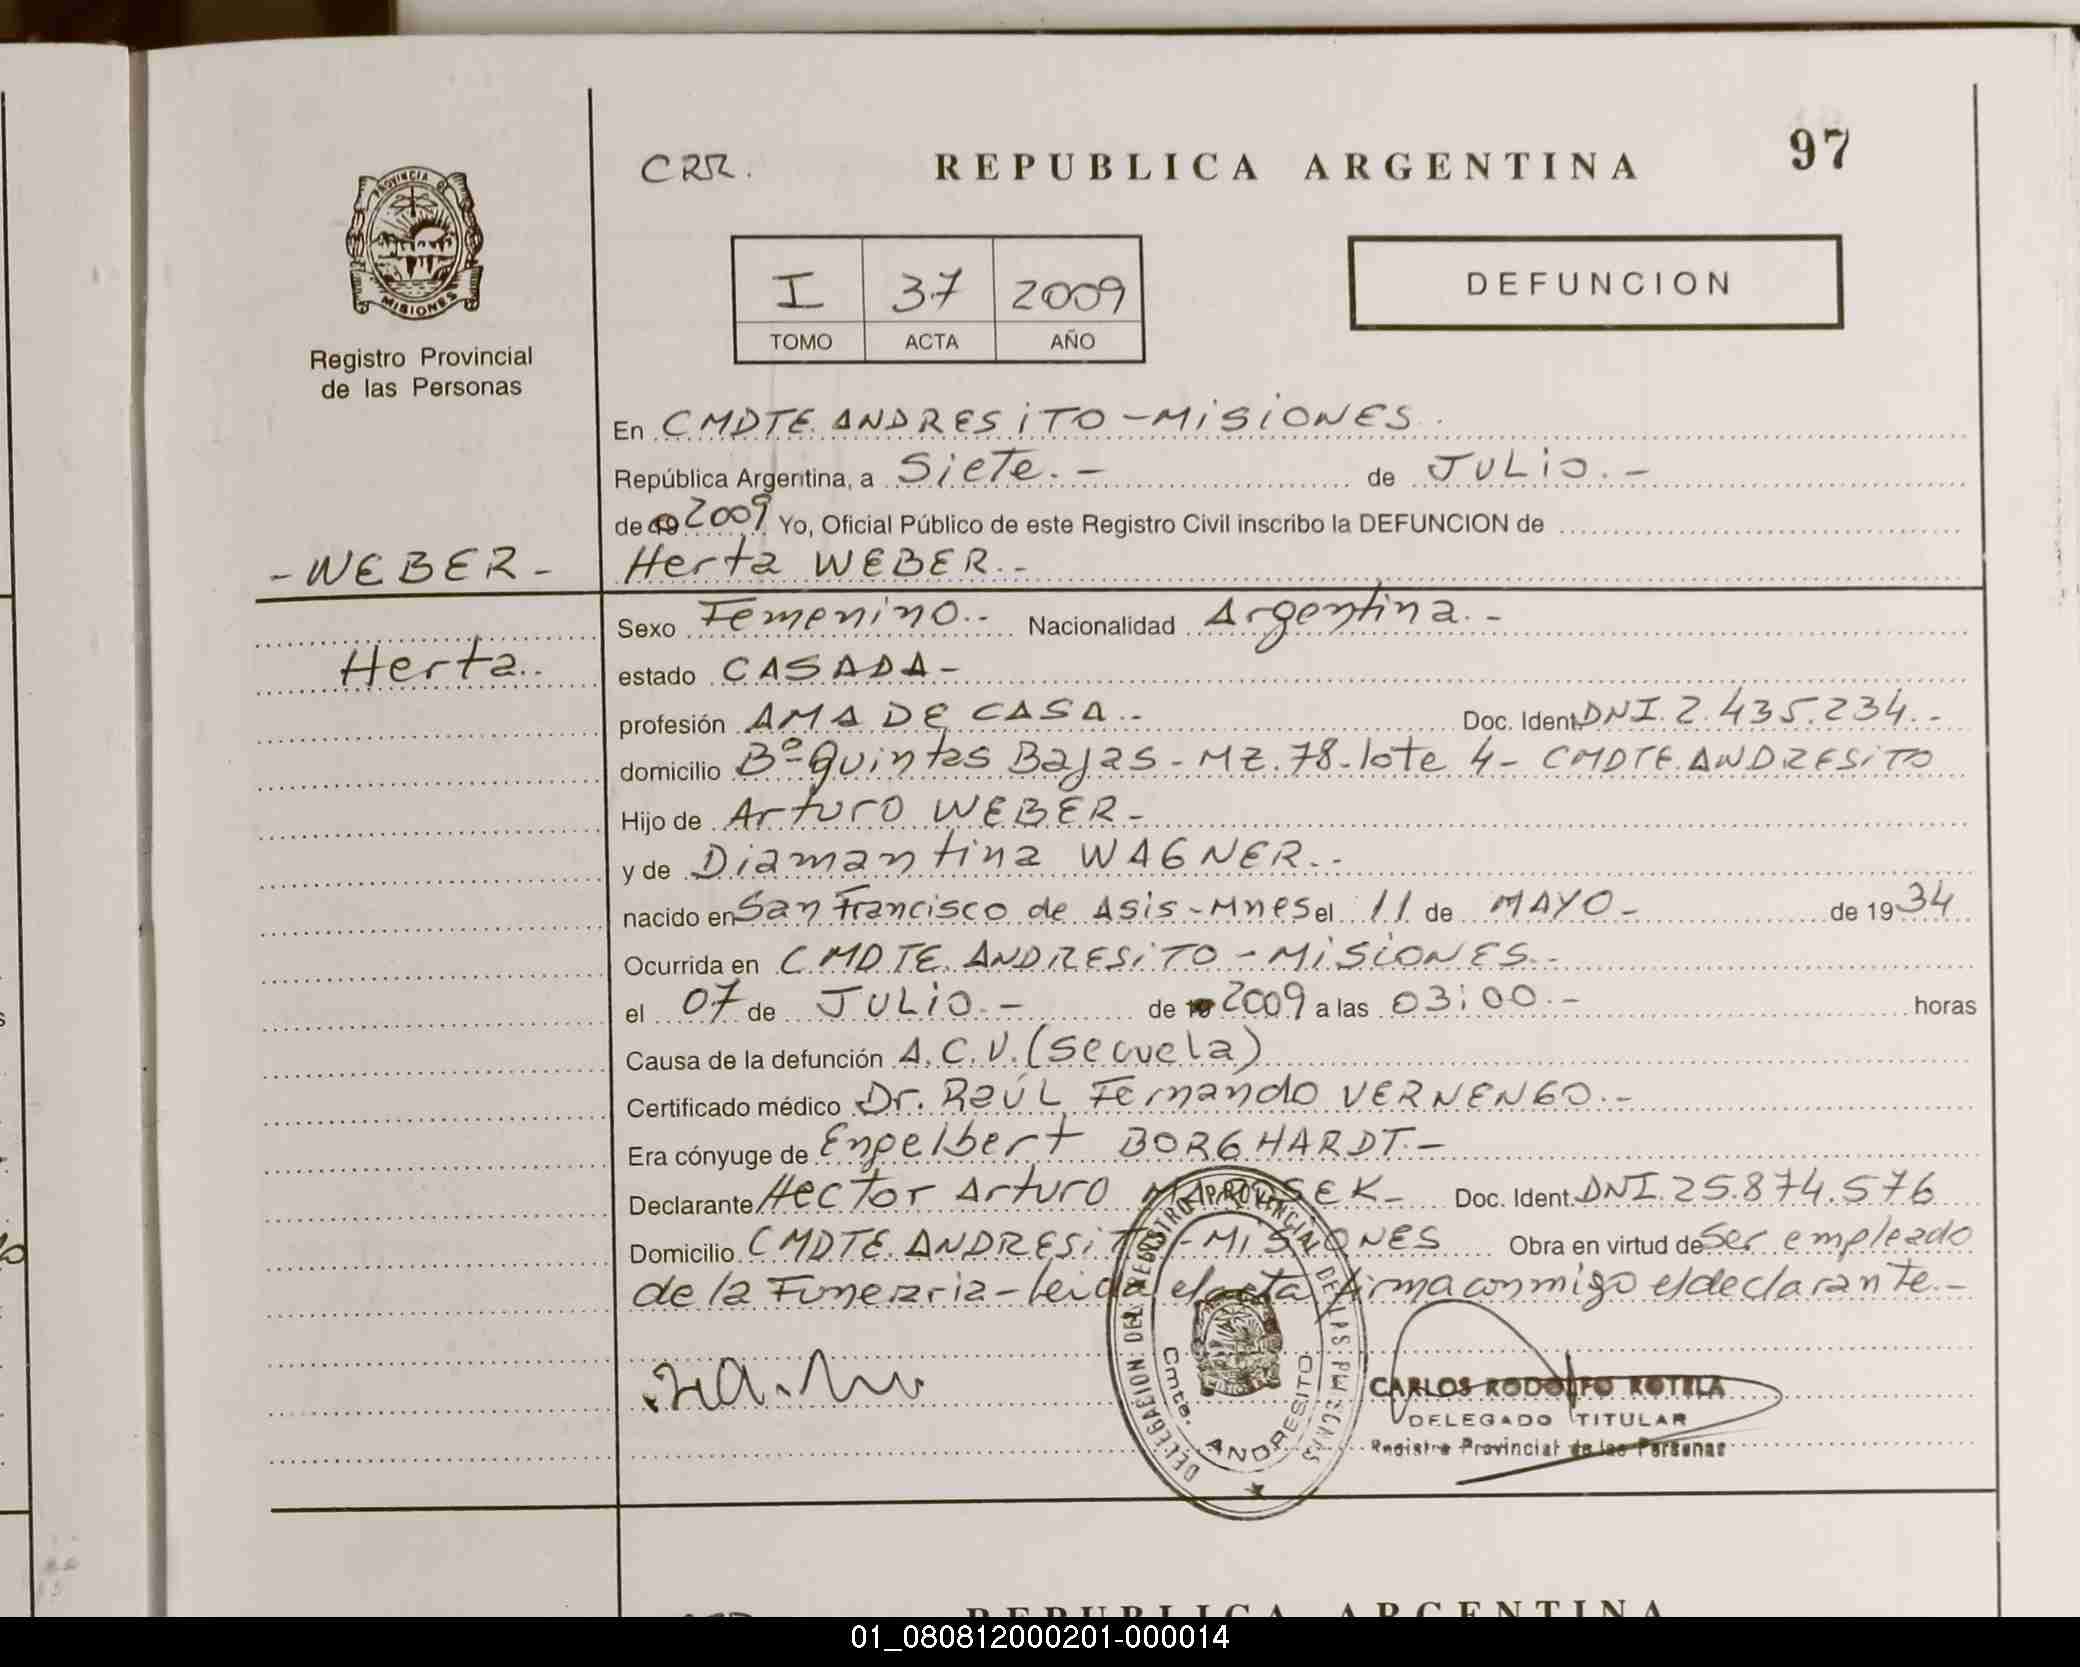 97
CRR.
REPUBLICA ARGENTINA
PROVINCIA DE
MISIONES
Registro Provincial
de las Personas
I 37 2009
TOMO ACTA AÑO
DEFUNCION
En CMDTE. ANDRESITO - MISIONES.
República Argentina, a Siete.- de JULIO.-
de 19 2009 Yo, Oficial Público de este Registro Civil inscribo la DEFUNCION de
- WEBER - Herta WEBER.-
Sexo Femenino.- Nacionalidad Argentina.-
Herta.. estado CASADA-
profesión AMA DE CASA.- Doc. Ident. DNI. 2.435.234.-
domicilio Bº Quintas Bajas - MZ. 78 - lote 4 - CMDTE. ANDRESITO
Hijo de Arturo WEBER-
y de Diamantina WAGNER..
nacido en San Francisco de Asis - Mnes el 11 de MAYO - de 1934
Ocurrida en CMDTE. ANDRESITO - MISIONES.-
el 07 de JULIO.- de 19 2009 a las 03:00.- horas
Causa de la defunción A.C.V. (Secuela)
Certificado médico Dr. Raúl Fernando VERNENGO.-
Era cónyuge de Engelbert BORGHARDT.-
Declarante Hector Arturo Doc. Ident. DNI. 25.874.576
Domicilio CMDTE. ANDRESITO - MISIONES Obra en virtud de Ser empleado
de la Funeraria - leida el acta firma conmigo el declarante.-
DELEGACION DEL REGISTRO PROVINCIAL DE LAS PERSONAS
Cmte. ANDRESITO
CARLOS RODOLFO ROTELA
DELEGADO TITULAR
Registro Provincial de las Personas
REPUBLICA ARGENTINA
01_080812000201-000014